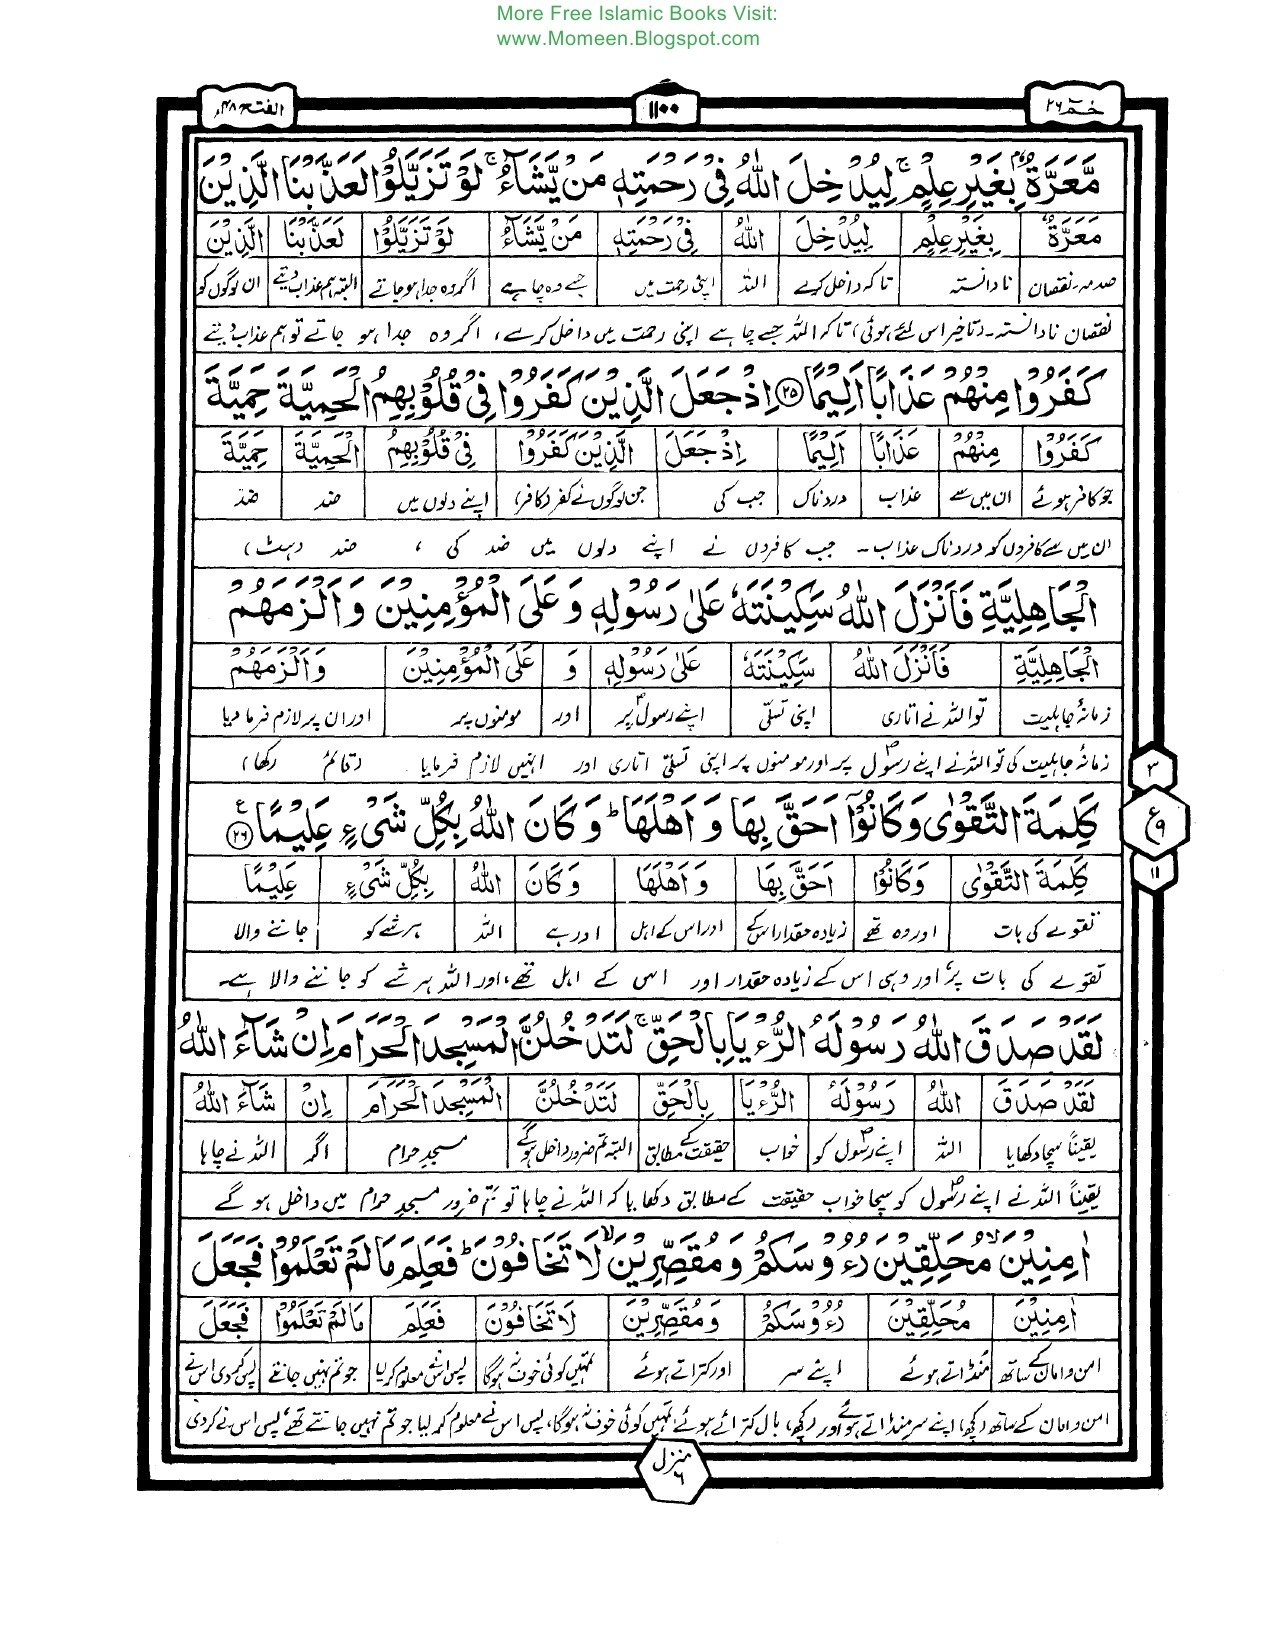 More Free Islamic Books Visit:
www.Momeen.Blogspot.com
حٰمٓ ۲۶
۱۱۰۰
الفتح ۴۸
مَّعَرَّةٌۢ بِغَيْرِ عِلْمٍ ۚ لِيُدْخِلَ اللّٰهُ فِيْ رَحْمَتِهٖ مَنْ يَّشَآءُ ۚ لَوْ تَزَيَّلُوْا لَعَذَّبْنَا الَّذِيْنَ
مَّعَرَّةٌ بِغَيْرِ عِلْمٍ لِيُدْخِلَ اللّٰهُ فِيْ رَحْمَتِهٖ مَنْ يَّشَآءُ لَوْ تَزَيَّلُوْا لَعَذَّبْنَا الَّذِيْنَ
صدمہ۔نقصان نادانستہ تاکہ داخل کرے اللہ اپنی رحمت میں جسے وہ چاہے اگر وہ جدا ہو جاتے البتہ ہم عذاب دیتے ان لوگوں کو
نقصان نادانستہ۔ (تاخیر اس لئے ہوئی) تاکہ اللہ جسے چاہے اپنی رحمت میں داخل کرے، اگر وہ جدا ہو جاتے تو ہم عذاب دیتے
كَفَرُوْا مِنْهُمْ عَذَابًا اَلِيْمًا ۲۵ اِذْ جَعَلَ الَّذِيْنَ كَفَرُوْا فِيْ قُلُوْبِهِمُ الْحَمِيَّةَ حَمِيَّةَ
كَفَرُوْا مِنْهُمْ عَذَابًا اَلِيْمًا اِذْ جَعَلَ الَّذِيْنَ كَفَرُوْا فِيْ قُلُوْبِهِمُ الْحَمِيَّةَ حَمِيَّةَ
جو کافر ہوئے ان میں سے عذاب دردناک جب کی جن لوگوں نے کفر (کافر) اپنے دلوں میں ضد ضد
ان میں سے کافروں کو دردناک عذاب۔ جب کافروں نے اپنے دلوں میں ضد کی ، ضد (ہٹ)
الْجَاهِلِيَّةِ فَاَنْزَلَ اللّٰهُ سَكِيْنَتَهٗ عَلٰى رَسُوْلِهٖ وَ عَلَى الْمُؤْمِنِيْنَ وَاَلْزَمَهُمْ
الْجَاهِلِيَّةِ فَاَنْزَلَ اللّٰهُ سَكِيْنَتَهٗ عَلٰى رَسُوْلِهٖ وَ عَلَى الْمُؤْمِنِيْنَ وَاَلْزَمَهُمْ
زمانۂ جاہلیت تو اللہ نے اتاری اپنی تسلی اپنے رسولؐ پر اور مومنوں پر اور ان پر لازم فرما دیا
زمانۂ جاہلیت کی تو اللہ نے اپنے رسولؐ پر اور مومنوں پر اپنی تسلی اتاری اور انہیں لازم فرمایا (قائم رکھا)
۳
ع
۹
۱۱
كَلِمَةَ التَّقْوٰى وَكَانُوْٓا اَحَقَّ بِهَا وَ اَهْلَهَا ؕ وَ كَانَ اللّٰهُ بِكُلِّ شَيْءٍ عَلِيْمًا ۲۶ ع
كَلِمَةَ التَّقْوٰى وَكَانُوْٓا اَحَقَّ بِهَا وَ اَهْلَهَا وَ كَانَ اللّٰهُ بِكُلِّ شَيْءٍ عَلِيْمًا
تقوے کی بات اور وہ تھے زیادہ حقدار اس کے اور اس کے اہل اور ہے اللہ ہر شے کو جاننے والا
تقوے کی بات پر، اور وہی اس کے زیادہ حقدار اور اس کے اہل تھے، اور اللہ ہر شے کو جاننے والا ہے۔
لَقَدْ صَدَقَ اللّٰهُ رَسُوْلَهُ الرُّءْيَا بِالْحَقِّ ۚ لَتَدْخُلُنَّ الْمَسْجِدَ الْحَرَامَ اِنْ شَآءَ اللّٰهُ
لَقَدْ صَدَقَ اللّٰهُ رَسُوْلَهُ الرُّءْيَا بِالْحَقِّ لَتَدْخُلُنَّ الْمَسْجِدَ الْحَرَامَ اِنْ شَآءَ اللّٰهُ
یقیناً سچا دکھایا اللہ اپنے رسولؐ کو خواب حقیقت کے مطابق البتہ تم ضرور داخل ہوگے مسجدِ حرام اگر اللہ نے چاہا
یقیناً اللہ نے اپنے رسولؐ کو سچا خواب حقیقت کے مطابق دکھایا کہ اللہ نے چاہا تو تم ضرور مسجدِ حرام میں داخل ہو گے
اٰمِنِيْنَ ۙ مُحَلِّقِيْنَ رُءُوْسَكُمْ وَ مُقَصِّرِيْنَ ۙ لَا تَخَافُوْنَ ؕ فَعَلِمَ مَا لَمْ تَعْلَمُوْا فَجَعَلَ
اٰمِنِيْنَ مُحَلِّقِيْنَ رُءُوْسَكُمْ وَ مُقَصِّرِيْنَ لَا تَخَافُوْنَ فَعَلِمَ مَا لَمْ تَعْلَمُوْا فَجَعَلَ
امن و امان کے ساتھ منڈاتے ہوئے اپنے سر اور کتراتے ہوئے تمہیں کوئی خوف نہ ہوگا پس اس نے معلوم کر لیا جو تم نہیں جانتے پس کر دی اس نے
امن و امان کے ساتھ رکھ، اپنے سر منڈاتے ہوئے اور رکھ، بال کتراتے ہوئے، تمہیں کوئی خوف نہ ہوگا، پس اس نے معلوم کر لیا جو تم نہیں جانتے تھے، پس اس نے کر دی
منزل ۶